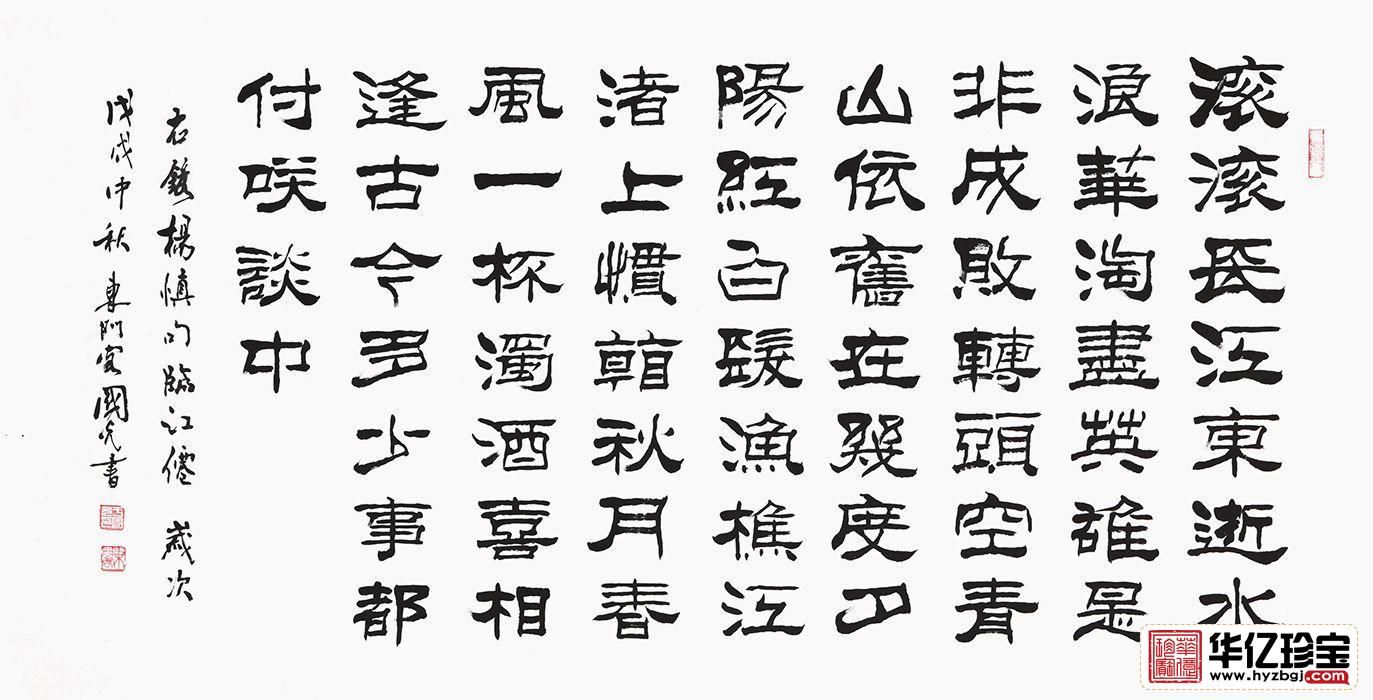 滚滚長江東逝水
浪華淘盡英雄是
非成敗轉頭空青
山依舊在幾度夕
陽紅白髮漁樵江
渚上慣看秋月春
風一杯濁酒喜相
逢古今多少事都
付咲談中
右錄楊慎句臨江僊 歲次
戊戌中秋 東 國光書
华亿珍宝
www.hyzbgj.com